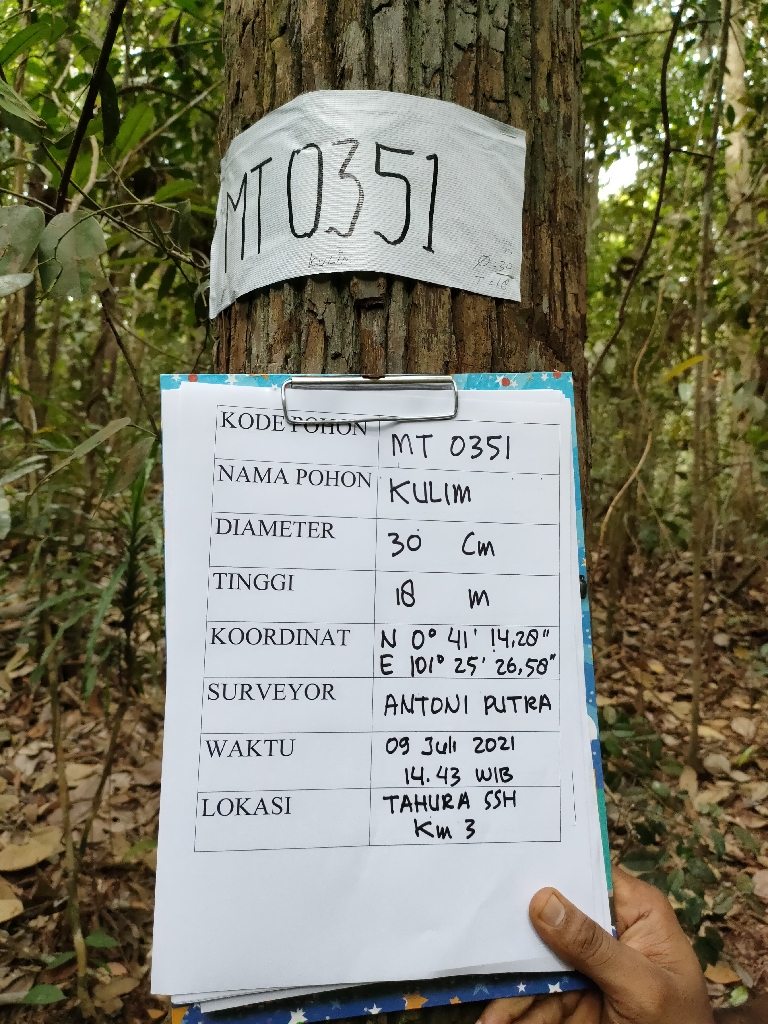 MT 0351
KULIM
Ø = 30
T = 18
KODE POHON MT 0351
NAMA POHON KULIM
DIAMETER 30 Cm
TINGGI 18 m
KOORDINAT N 0° 41' 14,28"
E 101° 25' 26,58"
SURVEYOR ANTONI PUTRA
WAKTU 09 Juli 2021
14.43 WIB
LOKASI TAHURA SSH
Km 3